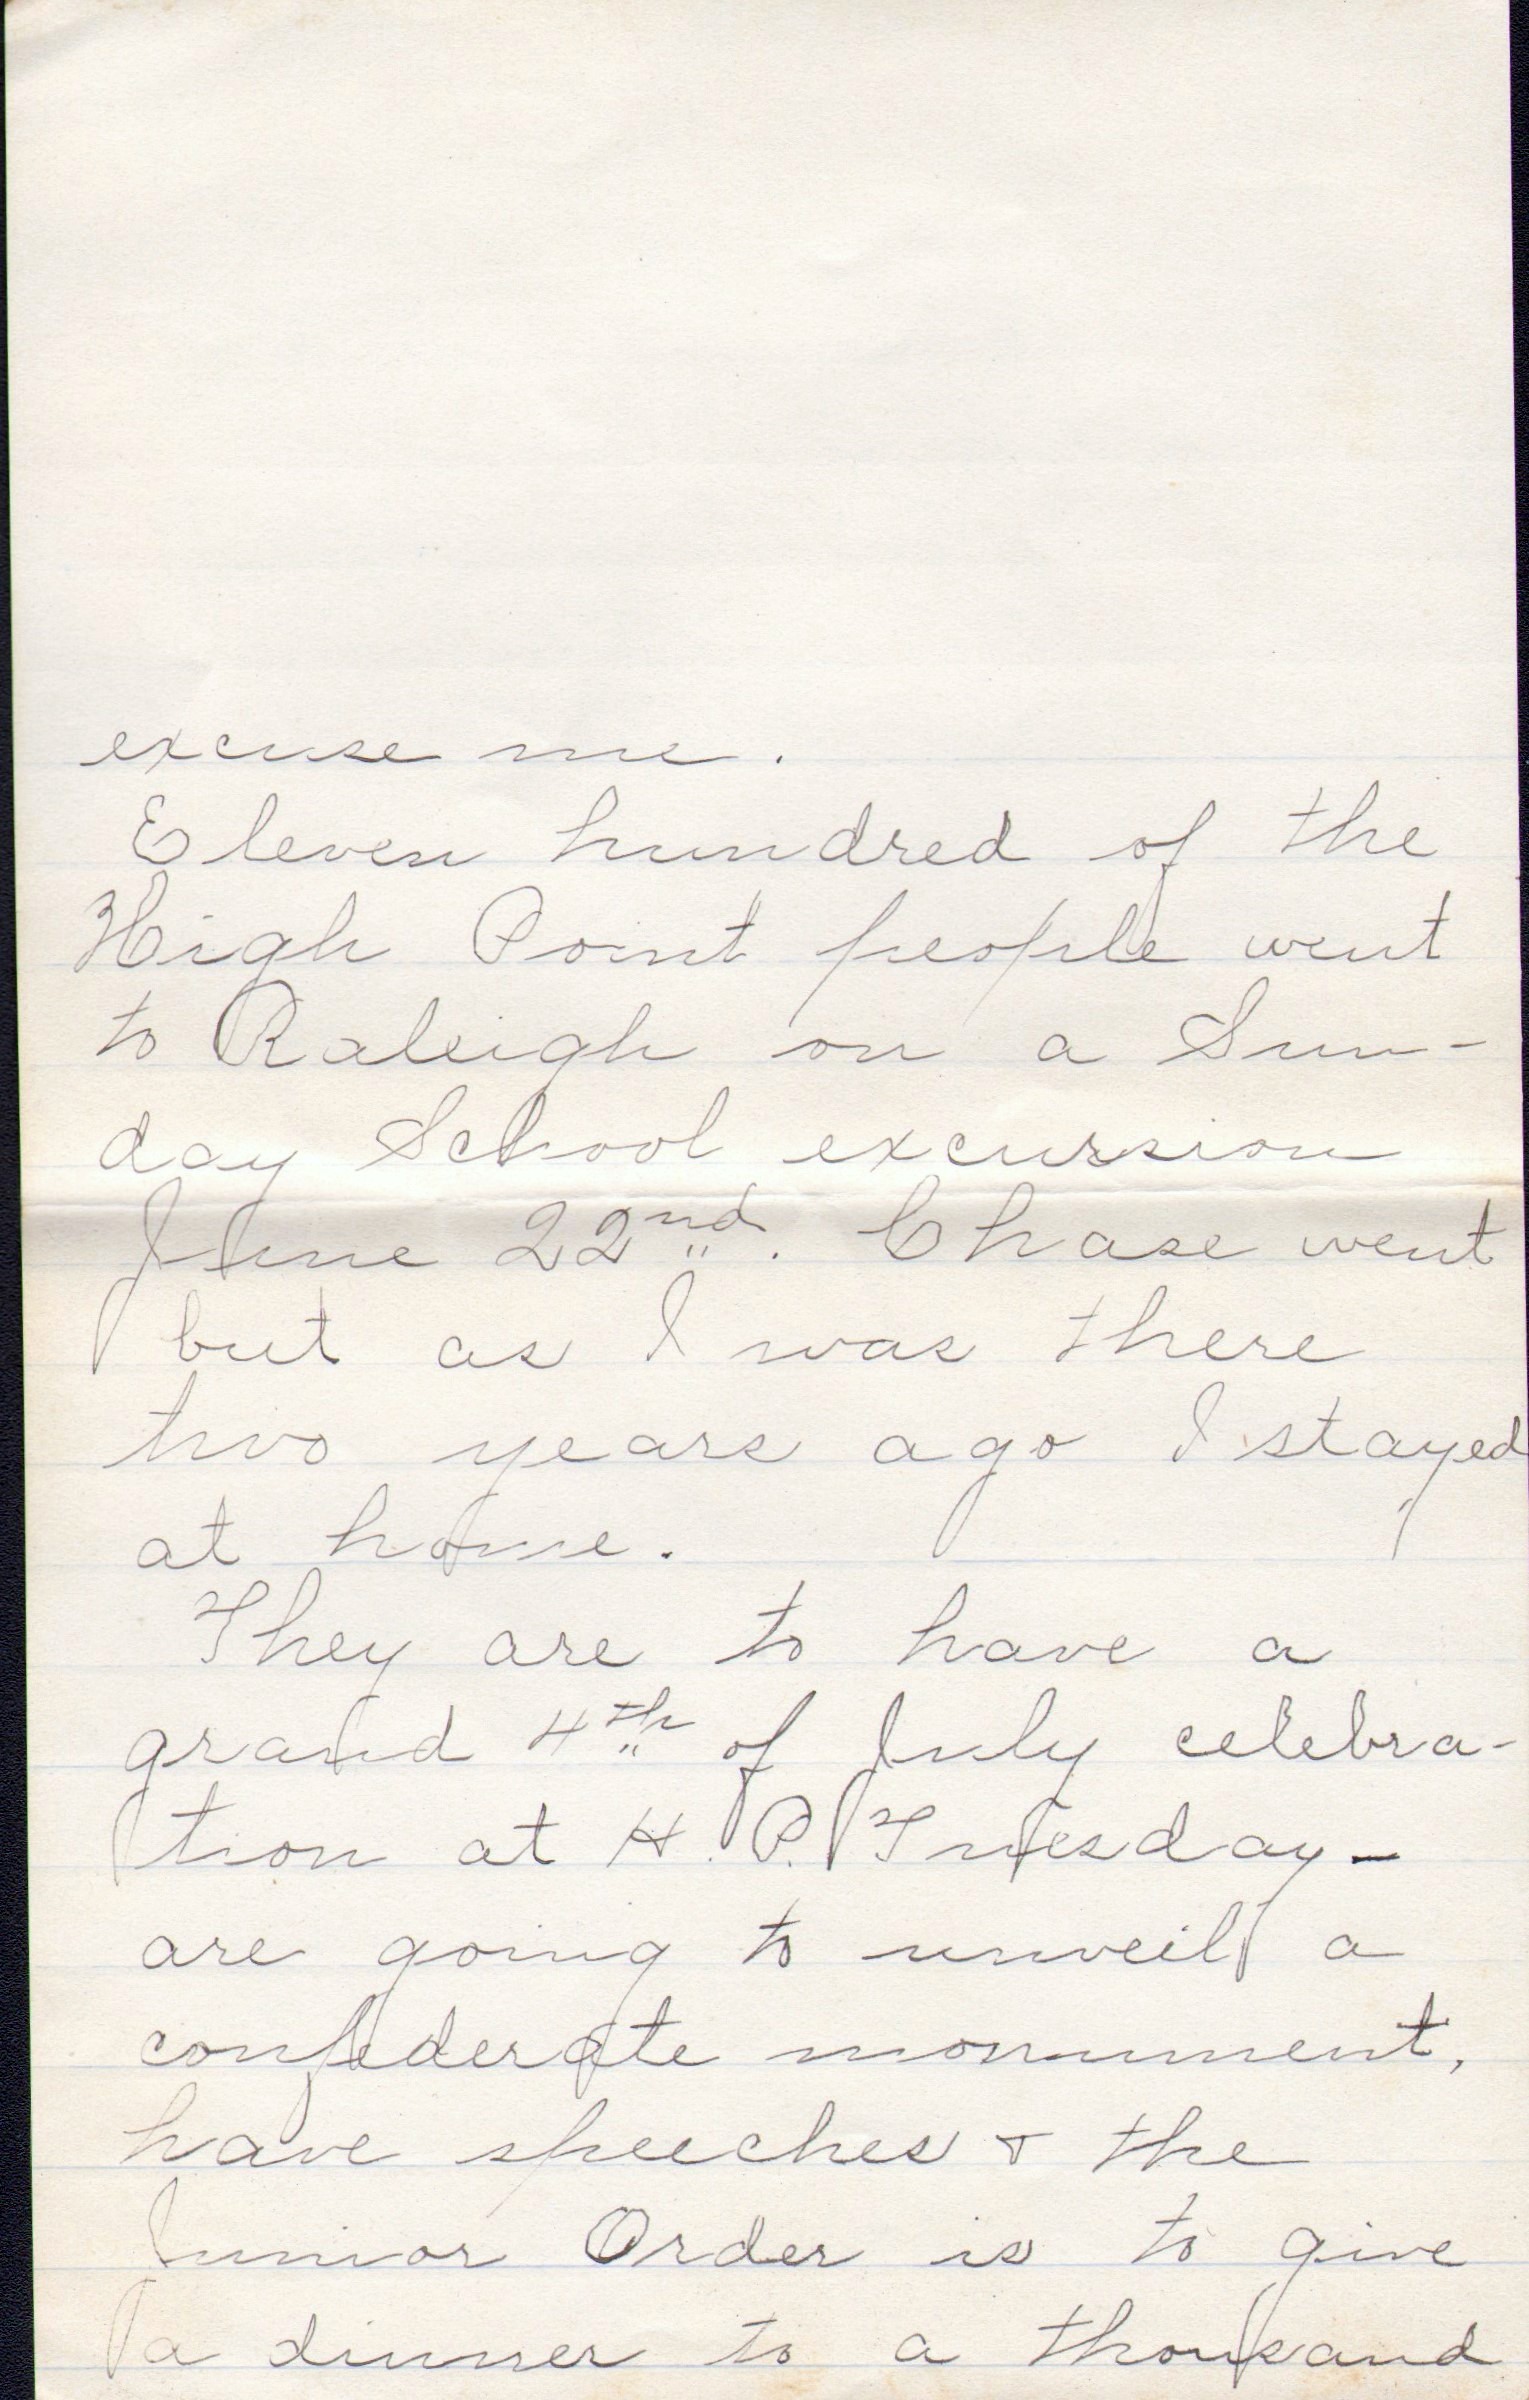 excuse me.
Eleven hundred of the
High Point people went
to Raleigh on a Sun-
day School excursion
June 22nd. Chase went
but as I was there
two years ago I stayed
at home.
They are to have a
grand 4th of July celebra-
tion at H. P. Tuesday -
are going to unveil a
confederate monument,
have speeches & the
Junior Order is to give
a dinner to a thousand